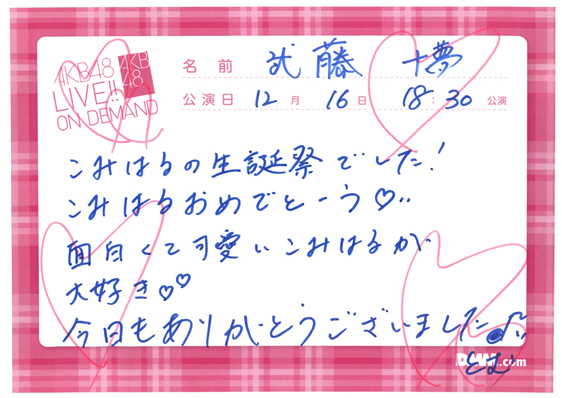 AKB48
LIVE!!
ON DEMAND
AKB
48
名前 武藤 十夢
公演日 12月 16日 18:30 公演
こみはるの生誕祭でした!
こみはるおめでとーう♡
面白くて可愛いこみはるが
大好き♡♡
今日もありがとうございました♪
とむ
DMM.com